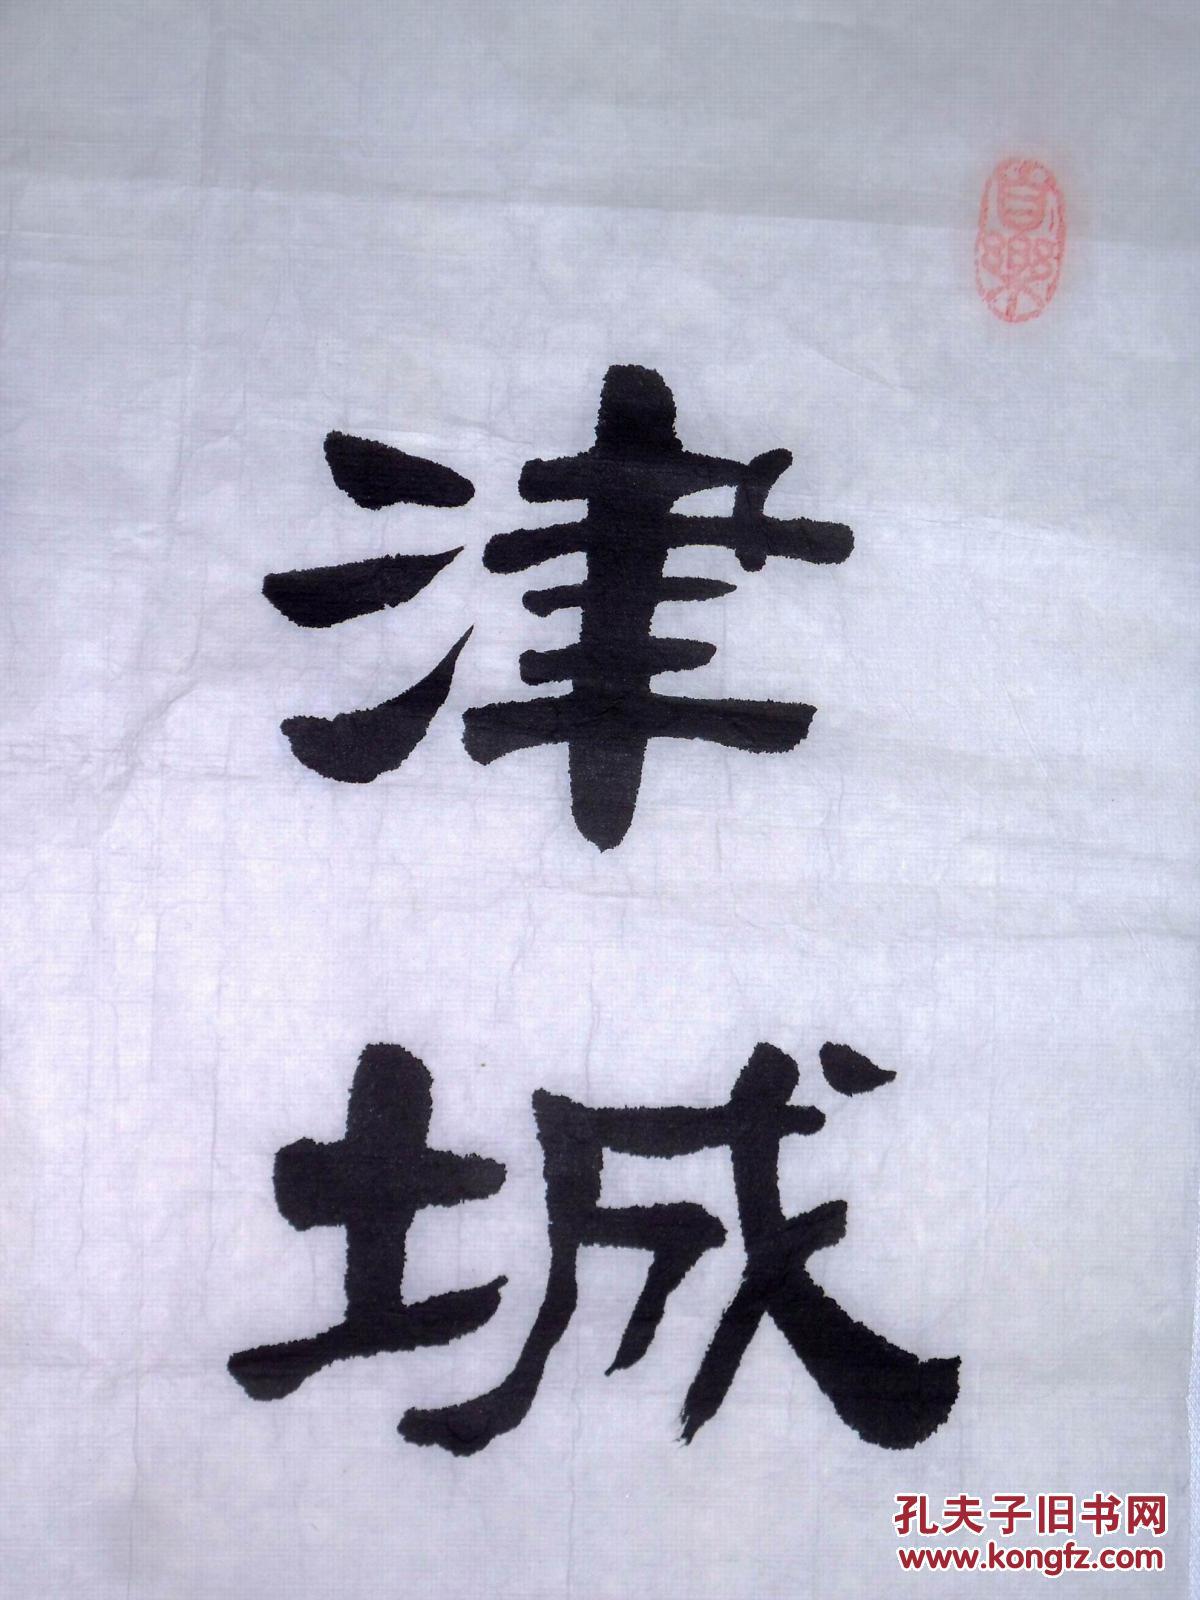 津
城
孔夫子旧书网
www.kongfz.com